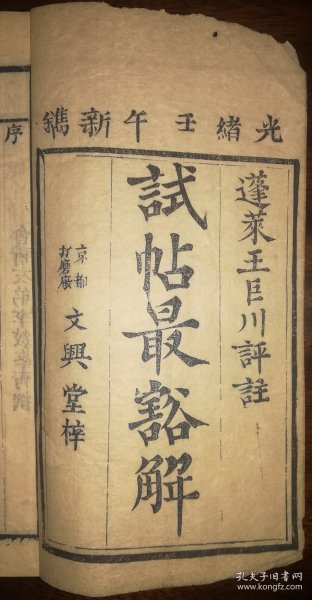 光緒壬午新鐫
蓬萊王巨川評註
試帖最豁解
京都
打磨廠
文興堂梓
序
孔夫子旧书网
www.kongfz.com